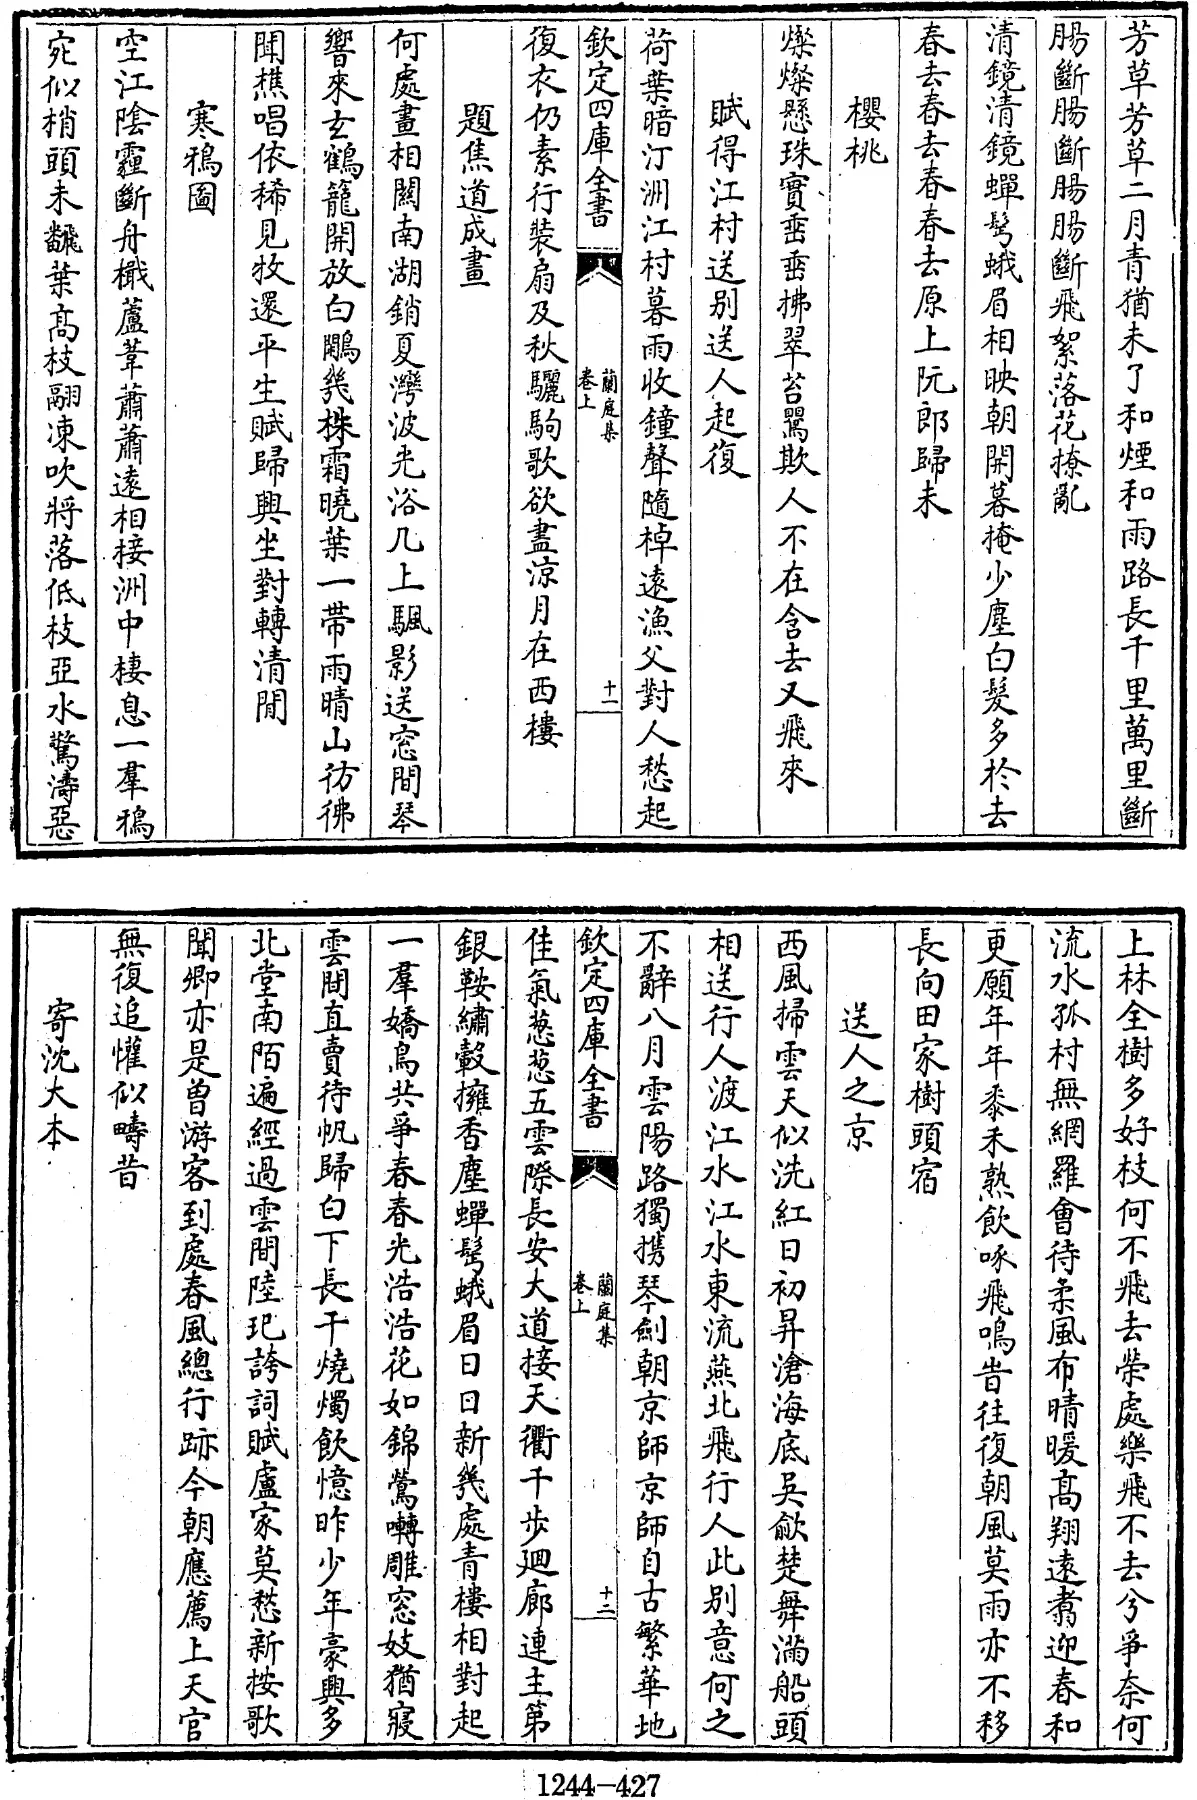 芳草芳草二月青猶未了和煙和雨路長千里萬里斷
腸斷腸斷腸腸斷飛絮落花撩亂
清鏡清鏡蟬髩蛾眉相映朝開暮掩少塵白髮多於去
春去春去春春去原上阮郎歸未
櫻桃
燦燦懸珠實垂垂拂翠苔鸎欺人不在含去又飛來
賦得江村送别送人起復
荷葉暗汀洲江村暮雨收鐘聲隨棹遠漁父對人愁起
欽定四庫全書
蘭庭集
卷上
十一
復衣仍素行裝扇及秋驪駒歌欲盡涼月在西樓
題焦道成畫
何處畫相關南湖銷夏灣波光浴几上颿影送窓間琴
響來玄鶴籠開放白鷴幾株霜曉葉一帶雨晴山彷彿
聞樵唱依稀見牧還平生賦歸興坐對轉清閒
寒鴉圖
空江陰霾斷舟檝蘆葦蕭蕭遠相接洲中棲息一羣鴉
宛似梢頭未飜葉高枝翮凍吹將落低枝亞水驚濤惡
上林全樹多好枝何不飛去榮處樂飛不去兮爭奈何
流水孤村無網羅會待柔風布晴暖高翔遠翥迎春和
更願年年黍禾熟飲啄飛鳴皆往復朝風莫雨亦不移
長向田家樹頭宿
送人之京
西風掃雲天似洗紅日初昇滄海底吳歈楚舞滿船頭
相送行人渡江水江水東流燕北飛行人此别意何之
不辭八月雲陽路獨攜琴劍朝京師京師自古繁華地
欽定四庫全書
蘭庭集
卷上
十二
佳氣葱葱五雲際長安大道接天衢千步廻廊連主第
銀鞍繡轂擁香塵蟬髩蛾眉日日新幾處青樓相對起
一羣嬌鳥共爭春春光浩浩花如錦鶯囀雕窓妓猶寢
雲間直賣待帆歸白下長干燒燭飲憶昨少年豪興多
北堂南陌遍經過雲間陸玘誇詞賦盧家莫愁新按歌
聞卿亦是曽游客到處春風總行跡今朝應薦上天官
無復追懽似疇昔
寄沈大本
1244-427